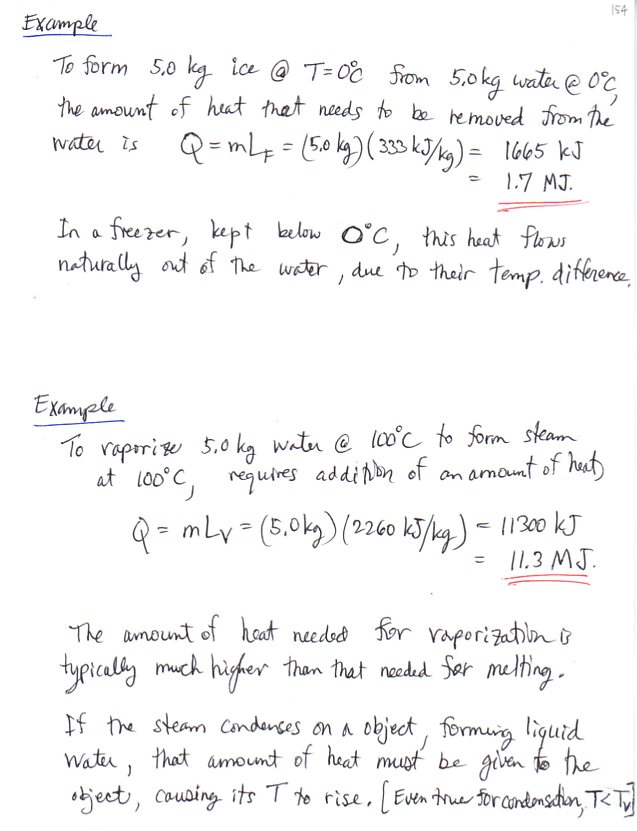 154
Example
To form 5.0 kg ice @ T=0°C from 5.0 kg water @ 0°C,
the amount of heat that needs to be removed from the
water is Q = mL_F = (5.0 kg)(333 kJ/kg) = 1665 kJ
= 1.7 MJ.
In a freezer, kept below 0°C, this heat flows
naturally out of the water, due to their temp. difference.
Example
To vaporize 5.0 kg water @ 100°C to form steam
at 100°C, requires addition of an amount of heat,
Q = mL_V = (5.0 kg)(2260 kJ/kg) = 11300 kJ
= 11.3 MJ.
The amount of heat needed for vaporization is
typically much higher than that needed for melting.
If the steam condenses on a object, forming liquid
water, that amount of heat must be given to the
object, causing its T to rise. [Even true for condensation, T<T_V]